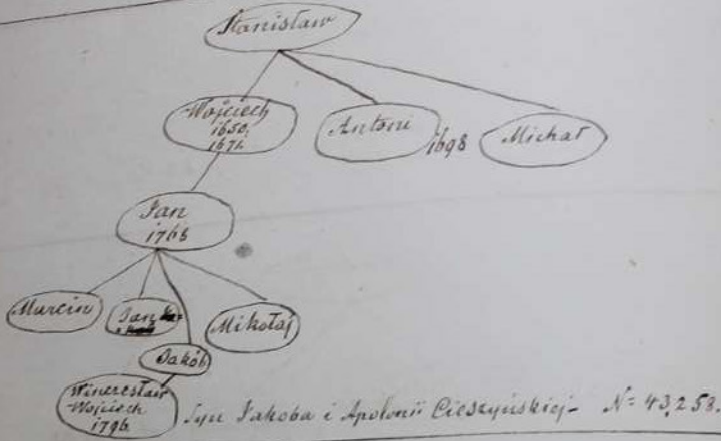 Stanisław
Wojciech
1650.
1671.
Antoni
1698
Michał
Jan
1768
Marcin
Jan
Mikołaj
Jakób
Wincesław
Wojciech
1796
Syn Jakoba i Apolonii Cieszyńskiej - N= 43,258.